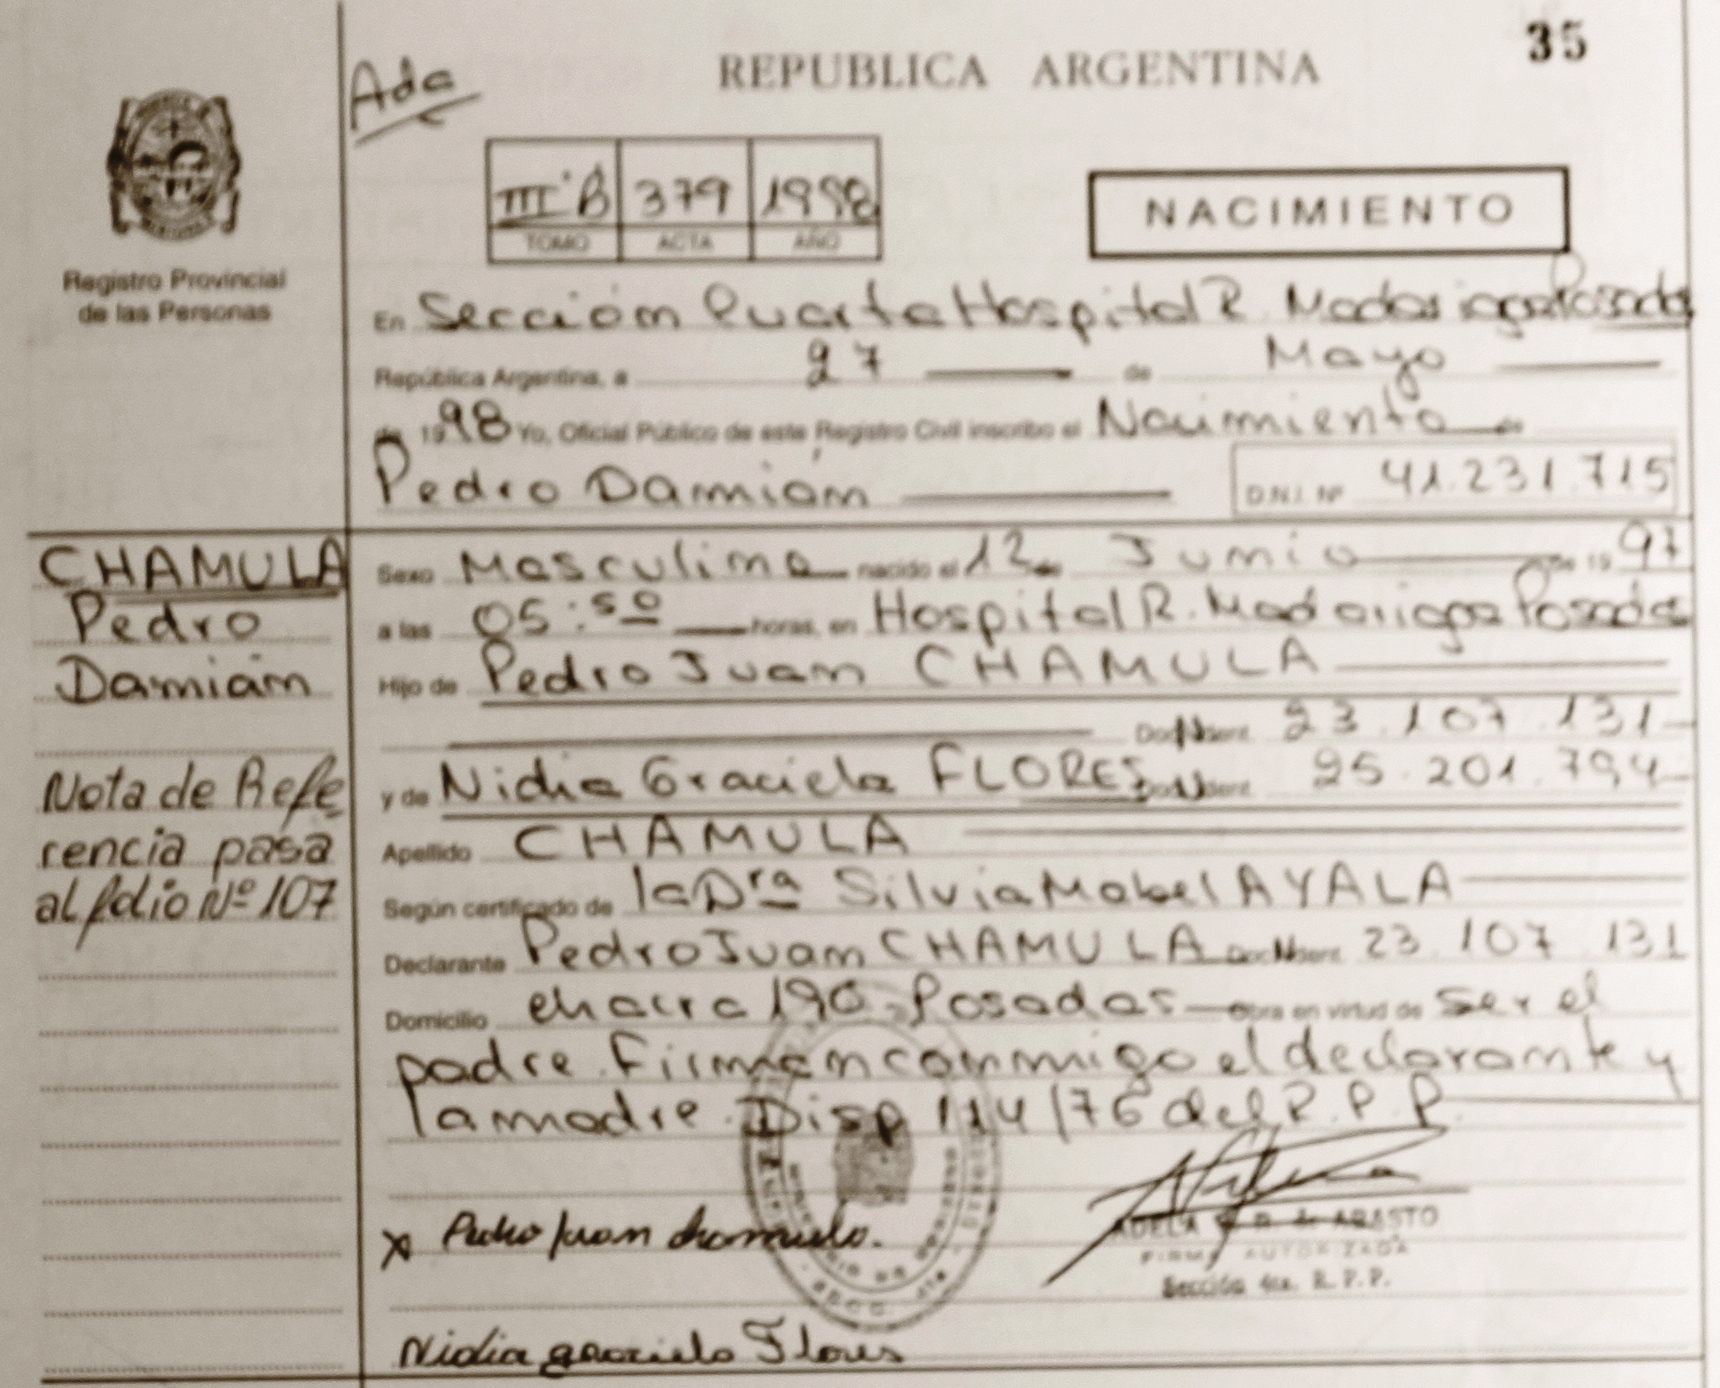 35
Ada
REPUBLICA ARGENTINA
IIIºB 379 1998
TOMO ACTA AÑO
NACIMIENTO
Registro Provincial
de las Personas
En Sección Cuarta Hospital R. Madariaga Posadas
República Argentina, a 27 de Mayo
de 1998 Yo, Oficial Público de este Registro Civil inscribo el Nacimiento de
Pedro Damián D.N.I. Nº 41.231.715
CHAMULA
Pedro
Damián
Nota de Refe
rencia pasa
al folio Nº 107
Sexo Masculino nacido el 12 de Junio de 1997
a las 05:50 horas, en Hospital R. Madariaga Posadas
Hijo de Pedro Juan CHAMULA
23.107.131
y de Nidia Graciela FLORES 25.201.794
Apellido CHAMULA
Según certificado de la Dra Silvia Mabel AYALA
Declarante Pedro Juan CHAMULA 23.107.131
Domicilio chacra 190 - Posadas obra en virtud de ser el
padre. Firman conmigo el declarante y
la madre. Disp 114/76 del R.P.P.
Pedro Juan Chamula.
ADELA de ARASTO
FIRMA AUTORIZADA
Sección 4ta. R.P.P.
Nidia graciela Flores